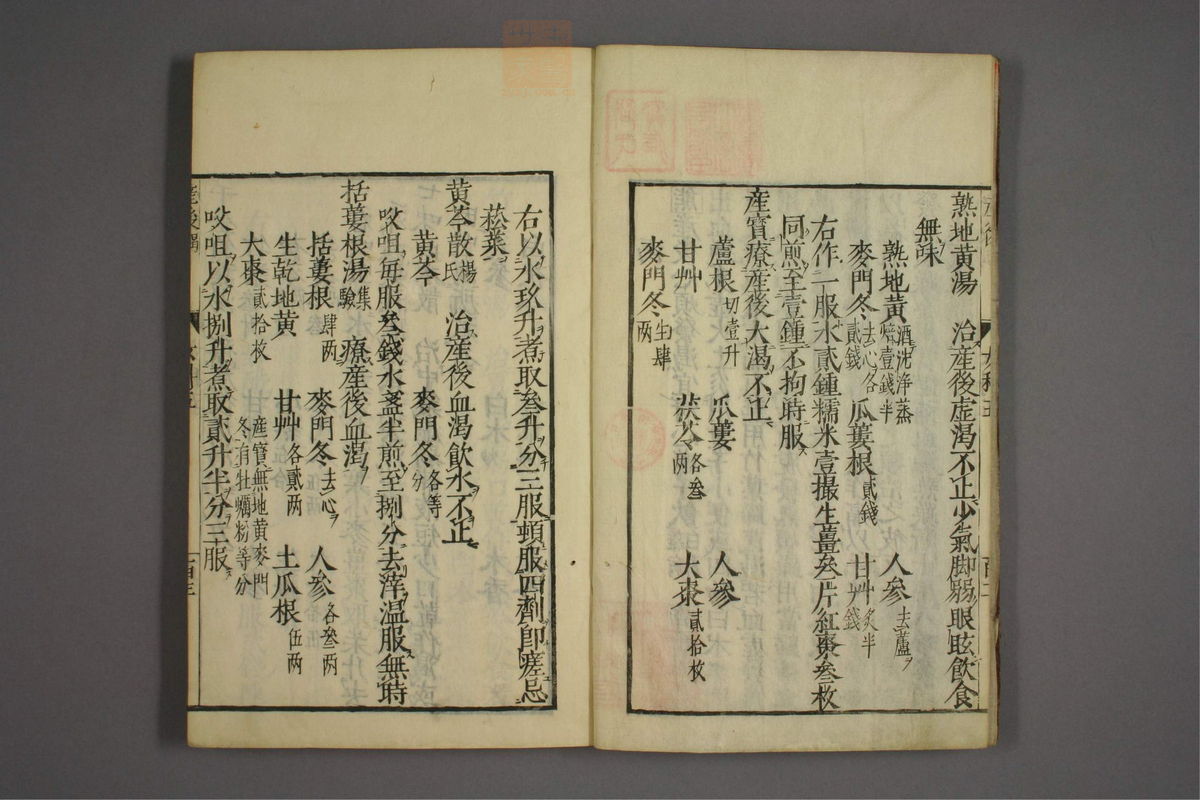 熟地黄湯　治産後虚渇不止少氣脚弱眼眩飲食
無味
熟地黄酒洗浄蒸焙壹錢半　人參去蘆
麥門冬去心各貳錢　瓜蔞根貳錢　甘艸炙半錢
右作一服水貳鍾糯米壹撮生薑叄片紅棗叄枚
同煎至壹鍾不拘時服
産寳療産後大渇不止
蘆根切壹升　瓜蔞　人參
甘艸　茯苓各叄两　大棗貳拾枚
麥門冬生肆两
右以水玖升煮取叄升分三服頓服四劑即瘥忌
菘菜
黄芩散楊氏　治産後血渇飲水不止
黄芩　麥門冬各等分
㕮咀毎服叄錢水盞半煎至捌分去滓温服無時
括蔞根湯集驗　療産後血渇
括蔞根肆两　麥門冬去心　人參各叄两
生乾地黄　甘艸各貳两　土瓜根伍两
大棗貳拾枚　産寳無地黄麥門冬有牡蠣粉等分
㕮咀以水捌升煮取貳升半分三服